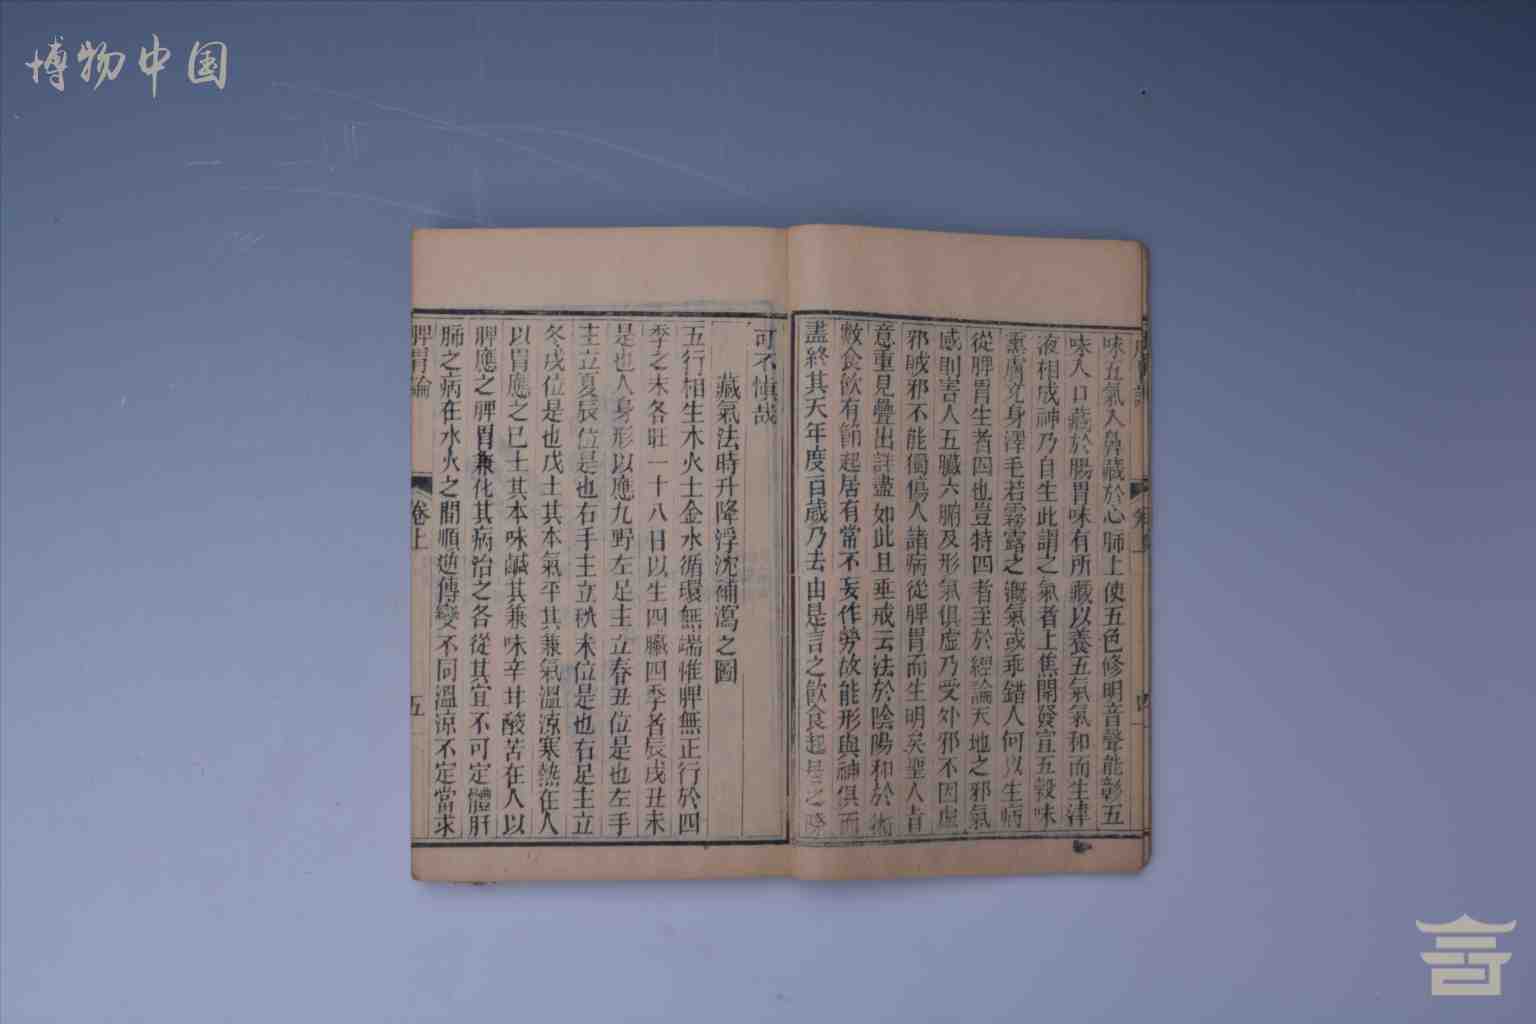 博物中国
味五氣入鼻藏於心肺上使五色修明音聲能彰五
味入口藏於腸胃味有所藏以養五氣氣和而生津
液相成神乃自生此謂之氣者上焦開發宣五穀味
熏膚充身澤毛若霧露之溉氣或乖錯人何以生病
從脾胃生者四也豈特四者至於經論天地之邪氣
感則害人五臟六腑及形氣俱虛乃受外邪不因虛
邪賊邪不能獨傷人諸病從脾胃而生明矣聖人旨
意重見疊出詳盡如此且垂戒云法於陰陽和於術
數食飲有節起居有常不妄作勞故能形與神俱而
盡終其天年度百歲乃去由是言之飲食起居之際
可不慎哉
藏氣法時升降浮沈補瀉之圖
五行相生木火土金水循環無端惟脾無正行於四
季之末各旺一十八日以生四臟四季者辰戌丑未
是也人身形以應九野左足主立春丑位是也左手
主立夏辰位是也右手主立秋未位是也右足主立
冬戌位是也戊土其本氣平其兼氣溫涼寒熱在人
以胃應之巳土其本味鹹其兼味辛甘酸苦在人以
脾應之脾胃兼化其病治之各從其宜不可定體肝
肺之病在水火之間順逆傳變不同溫涼不定當求
脾胃論 卷上 五